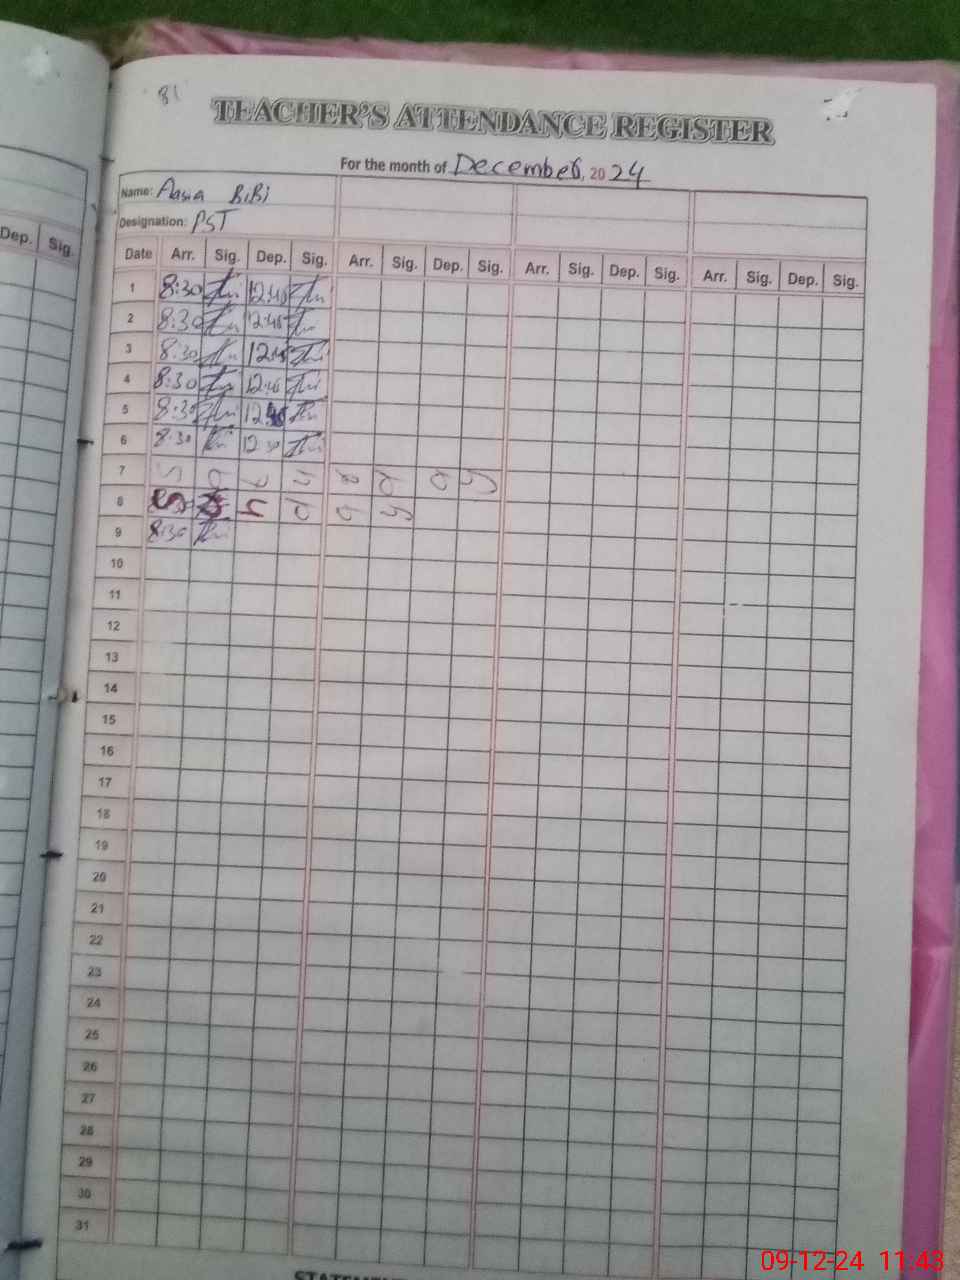 81
TEACHER'S ATTENDANCE REGISTER
For the month of December, 2024
Name: Aasia BiBi
Designation: PST
Dep. Sig.
Date Arr. Sig. Dep. Sig. Arr. Sig. Dep. Sig. Arr. Sig. Dep. Sig. Arr. Sig. Dep. Sig.
1 8:30 12:45
2 8:30 12:45
3 8:30 12:45
4 8:30 12:45
5 8:30
6 8:30 12:30
7 S a t u r d a y
8 S u n d a y
9 8:30
10
11
12
13
14
15
16
17
18
19
20
21
22
23
24
25
26
27
28
29
30
31
09-12-24 11:43